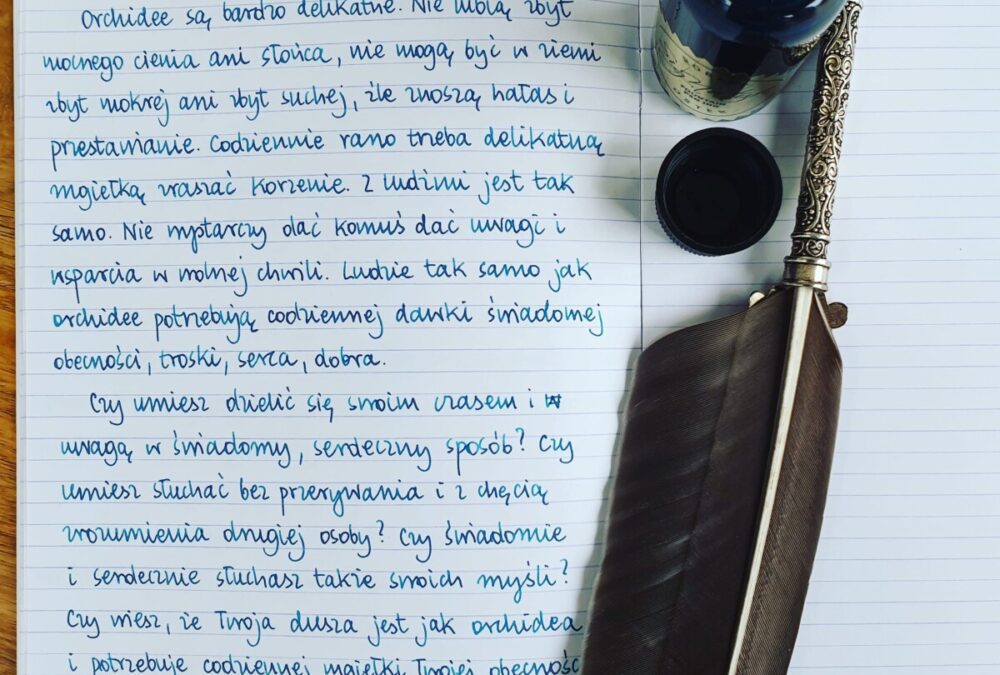 Orchidee są bardzo delikatne. Nie lubią zbyt
mocnego cienia ani słońca, nie mogą być w ziemi
zbyt mokrej ani zbyt suchej, źle znoszą hałas i
przestawianie. Codziennie rano trzeba delikatną
mgiełką zraszać korzenie. Z ludźmi jest tak
samo. Nie wystarczy dać komuś dać uwagi i
wsparcia w wolnej chwili. Ludzie tak samo jak
orchidee potrzebują codziennej dawki świadomej
obecności, troski, serca, dobra.
Czy umiesz dzielić się swoim czasem i
uwagą w świadomy, serdeczny sposób? Czy
umiesz słuchać bez przerywania i z chęcią
zrozumienia drugiej osoby? Czy świadomie
i serdecznie słuchasz także swoich myśli?
Czy wiesz, że Twoja dusza jest jak orchidea
i potrzebuje codziennej mgiełki Twojej obecnośc